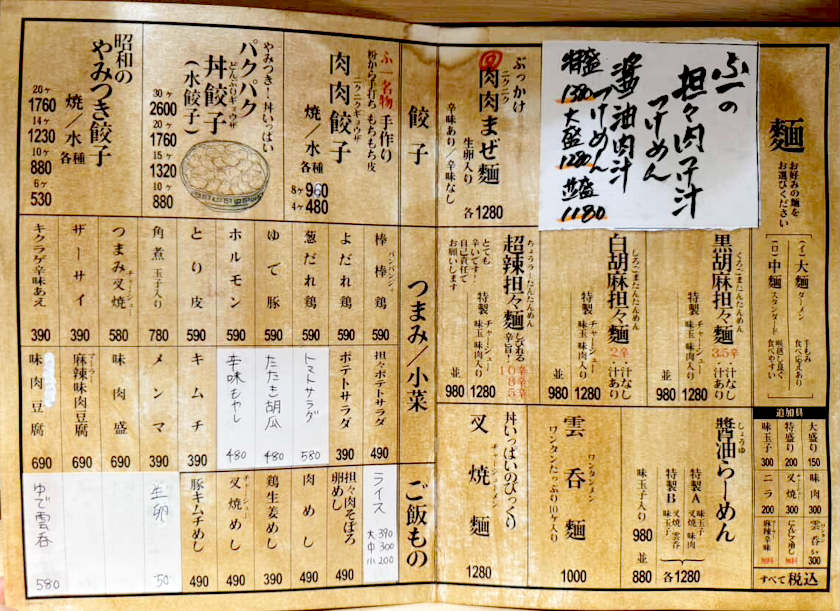 麵
お好みの麺を
お選びください
(イ)大麺
ダーメン
手もみ
食べ応えあり
(ロ)中麺
スタンダード
喉越し良く
食べやすい
追加具
大盛り 150
特盛り 200
味玉子 300
味肉 300
叉焼 300
ニラ 200
雲呑 5ヶ 300
にんにく増し 無料
麻辣辛味 無料
すべて税込
ふ一の
担々肉汁
つけめん
醤油肉汁
つけめん
特盛 1380
大盛 1280
並盛 1180
ぶっかけ
肉肉まぜ麺
ニクニク
生卵入り
辛味あり/辛味なし
各1280
くろごまたんたんめん
黒胡麻担々麺
3.5辛
・汁なし
・汁あり
特製
チャーシュー
味玉 味肉入り
並 980
1280
しろごまたんたんめん
白胡麻担々麺
2辛
・汁なし
・汁あり
特製
チャーシュー
味玉 味肉入り
並 980
1280
ちょうらーたんたんめん
超辣担々麺
しびれる
辛旨!
10辛
8辛
5辛
とても
辛いです!
自己責任で
お願いします
特製
チャーシュー
味玉 味肉入り
並 980
1280
しょうゆ
醬油らーめん
特製A
味玉子
叉焼 味肉
特製B
叉焼 雲呑
味玉子
各1280
味玉子入り 980
並 880
ワンタンメン
雲呑麺
ワンタンたっぷり10ヶ入り
1000
丼いっぱいのびっくり
チャーシューメン
叉焼麺
1280
餃子
ふ一名物 手作り
粉から手打ち もちもち皮
ニクニクギョウザ
肉肉餃子
焼/水 各種
8ヶ 960
4ヶ 480
やみつき!丼いっぱい
パクパク
どんぶりギョウザ
丼餃子
(水餃子)
30ヶ 2600
20ヶ 1760
15ヶ 1320
10ヶ 880
昭和の
やみつき餃子
焼/水 各種
20ヶ 1760
14ヶ 1230
10ヶ 880
6ヶ 530
つまみ/小菜
バンバンジー
棒棒鶏 590
よだれ鶏 590
葱だれ鶏 590
ゆで豚 590
ホルモン 590
とり皮 590
角煮 玉子入り 780
チャーシュー
つまみ叉焼 580
ザーサイ 390
キクラゲ辛味あえ 390
担々ポテトサラダ 490
ポテトサラダ 390
トマトサラダ 580
たたき胡瓜 480
辛味もやし 480
キムチ 390
メンマ 390
味肉盛 690
マーラー
麻辣味肉豆腐 690
味肉豆腐 690
ご飯もの
ライス
大 390
中 300
小 200
担々肉そぼろ
卵めし 490
肉めし 490
鶏生姜めし 390
チャーシュー
叉焼めし 490
豚キムチめし 490
生卵 50
ゆで雲呑 580